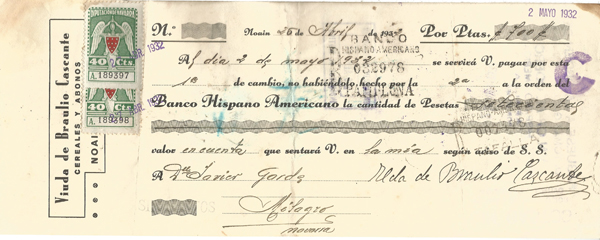 2 MAYO 1932
N.º Noain 26 de Abril de 1932 Por Ptas. 700
Al día 2 de mayo 1932 se servirá V. pagar por esta
1ª de cambio, no habiéndolo hecho por la 2ª a la orden del
Banco Hispano Americano la cantidad de Pesetas setecientas
valor en cuenta que sentará V. en la mía según aviso de S. S.
A Dn Javier Garde Vda de Braulio Cascante
Milagro
Navarra
BANCO
HISPANO AMERICANO
032978
PAMPLONA
Viuda de Braulio Cascante
CEREALES Y ABONOS
NOAIN
40 Cts
A.189397
40 Cts
A.189398